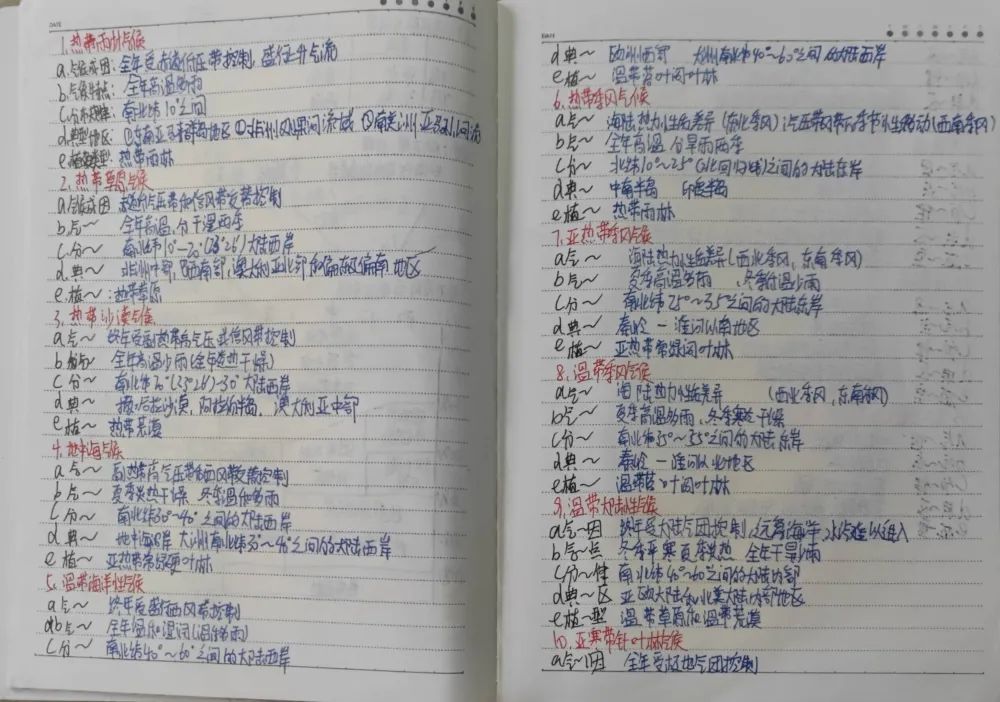 DATE
1. 热带雨林气候
a.气候成因:全年受赤道低压带控制,盛行上升气流
b.气候特点: 全年高温多雨
c.分布规律: 南北纬10°之间
d.典型地区: ①东南亚马来群岛地区 ①非洲刚果河流域 ①南美洲亚马孙河流
e.植被类型: 热带雨林
2. 热带草原气候
a.气候成因 赤道低气压带和信风带交替控制
b.气~ 全年高温,分干湿两季
c.分~ 南北纬10°-20°(23°26′)大陆西岸
d.典~ 非洲中部,巴西南部,澳大利亚北部和偏东及偏南地区
e.植~:热带草原
3. 热带沙漠气候
a.气~ 终年受副热带高气压或信风带控制
b.气~ 全年高温少雨(全年炎热干燥)
c.分~ 南北纬20°(23°26′)-30°大陆西岸
d.典~ 撒哈拉沙漠,阿拉伯半岛,澳大利亚中部
e.植~ 热带荒漠
4. 地中海气候
a.气~ 副热带高气压带和西风带交替控制
b.气~ 夏季炎热干燥、冬季温和多雨
c.分~ 南北纬30°~40°之间的大陆西岸
d.典~ 地中海沿岸 大洲南北纬30°~40°之间的大陆西岸
e.植~ 亚热带常绿硬叶林
5. 温带海洋性气候
a.气~ 终年受盛行西风带控制
b气~ 全年温和湿润(温和多雨)
c.分~ 南北纬40°~60°之间的大陆西岸
DATE
d.典~ 欧洲西部 大洲南北纬40°~60°之间的大陆西岸
e.植~ 温带落叶阔叶林
6. 热带季风气候
a气~ 海陆热力性质差异(东北季风)气压带风带的季节性移动(西南季风)
b气~ 全年高温 分旱雨两季
c分~ 北纬10°~25°(北回归线)之间的大陆东岸
d典~ 中南半岛 印度半岛
e植~ 热带雨林
7. 亚热带季风气候
a气~ 海陆热力性质差异(西北季风,东南季风)
b气~ 夏季高温多雨 、冬季低温少雨
c分~ 南北纬25°~35°之间的大陆东岸
d典~ 秦岭一淮河以南地区
e植~ 亚热带常绿阔叶林
8. 温带季风气候
a气~ 海陆热力性质差异 (西北季风,东南季风)
b气~ 夏季高温多雨、冬季寒冷干燥
c分~ 南北纬35°~55°之间的大陆东岸
d典~ 秦岭一淮河以北地区
e植~ 温带落叶阔叶林
9. 温带大陆性气候
a气~因 终年受大陆气团控制,远离海洋,水汽难以进入
b气~点 冬季严寒夏季炎热 全年干旱少雨
c分~律 南北纬40°~60°之间的大陆内部
d典~区 亚欧大陆和北美大陆内部地区
e植~型 温带草原和温带荒漠
10. 亚寒带针叶林气候
a气~因 全年受极地气团控制